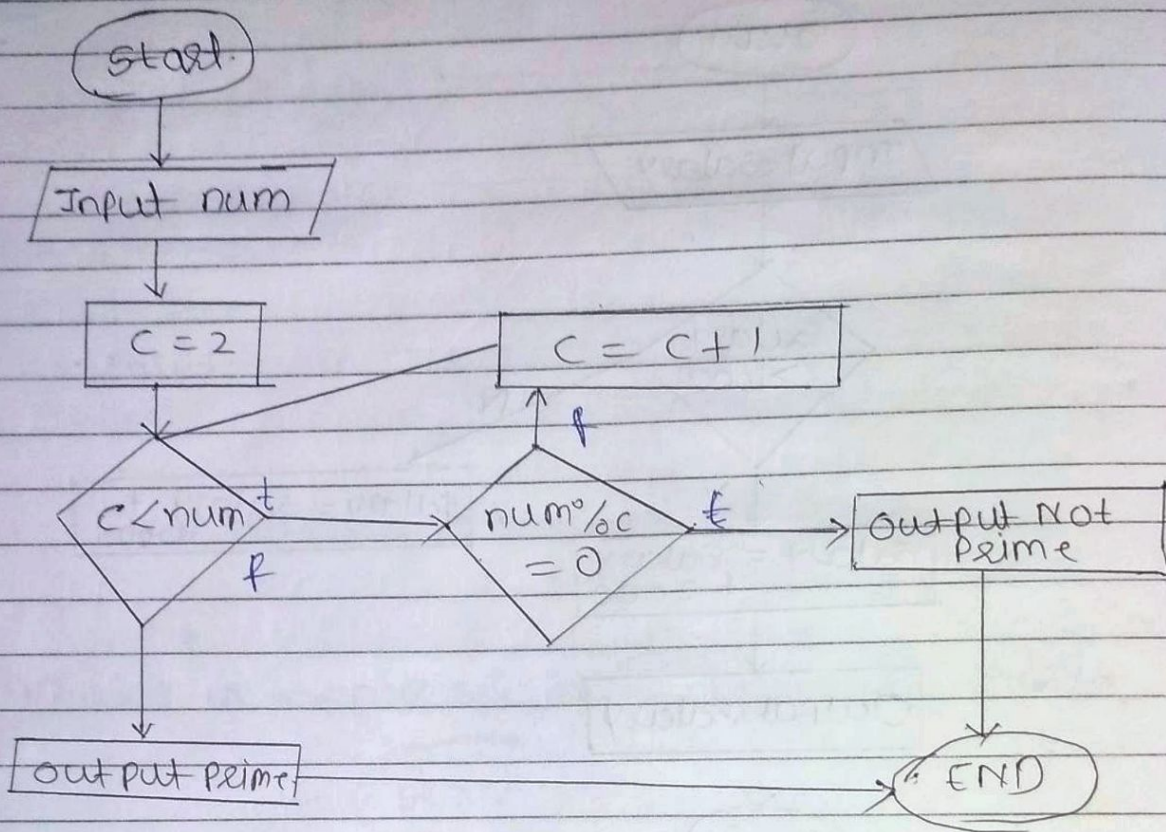 Start.
Input num
C = 2
C = C + 1
f
C < num
t
f
num % c
= 0
t
output Not
Prime
output prime
END